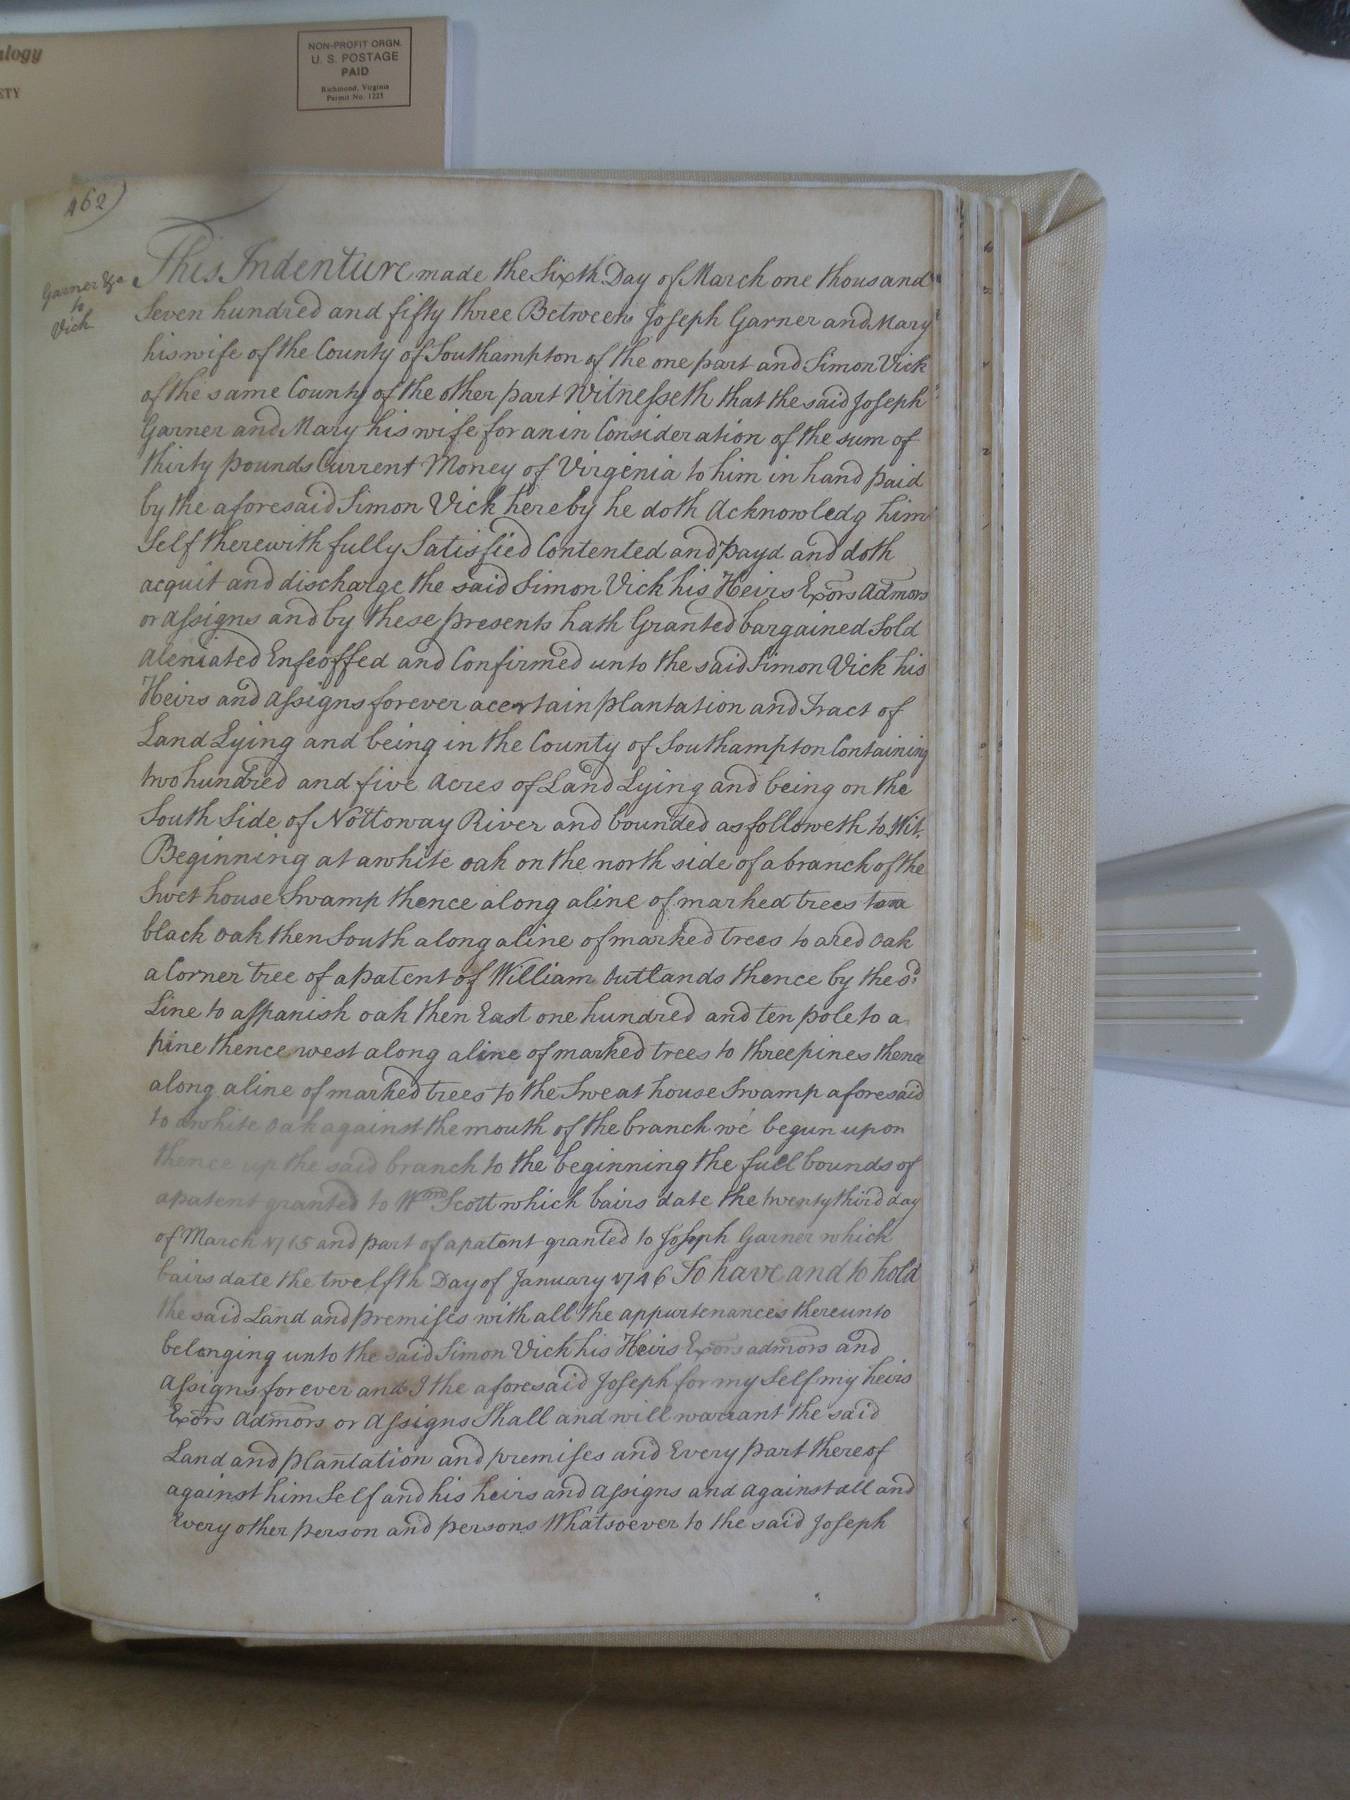 alogy
ETY
NON-PROFIT ORGN.
U. S. POSTAGE
PAID
Richmond, Virginia
Permit No. 1225
462)
Garner &c
to
Vick
This Indenture made the Sixth Day of March one thousand
Seven hundred and fifty three Between Joseph Garner and Mary
his wife of the County of Southampton of the one part and Simon Vick
of the same County of the other part Witnesseth that the said Joseph
Garner and Mary his wife for an in Consideration of the sum of
thirty pounds Current Money of Virginia to him in hand paid
by the aforesaid Simon Vick hereby he doth Acknowledg him
Self therewith fully Satisfied Contented and payd and doth
acquit and discharge the said Simon Vick his Heirs Exors Admors
or assigns and by these presents hath Granted bargained Sold
aleniated Enfeoffed and Confirmed unto the said Simon Vick his
Heirs and assigns forever a certain plantation and Tract of
Land Lying and being in the County of Southampton Containing
two hundred and five Acres of Land Lying and being on the
South Side of Nottoway River and bounded as followeth to Wit.
Beginning at a white oak on the north side of a branch of the
Swet house Swamp thence along a line of marked trees to a
black oak then South along a line of marked trees to a red oak
a Corner tree of a patent of William Outlands thence by the sd.
Line to a Spanish oak then East one hundred and ten pole to a
pine thence west along a line of marked trees to three pines thence
along a line of marked trees to the Sweat house Swamp aforesaid
to a white oak against the mouth of the branch we begun upon
thence up the said branch to the beginning the full bounds of
a patent granted to Wm Scott which bairs date the twenty third day
of March 1715 and part of a patent granted to Joseph Garner which
bairs date the twelfth Day of January 1746 To have and to hold
the said Land and premises with all the appurtenances thereunto
belonging unto the said Simon Vick his Heirs Exors admors and
assigns forever and I the aforesaid Joseph for my Self my heirs
Exors Admors or assigns Shall and will warrant the said
Land and plantation and premises and Every part thereof
against him Self and his heirs and assigns and against all and
Every other person and persons Whatsoever to the said Joseph